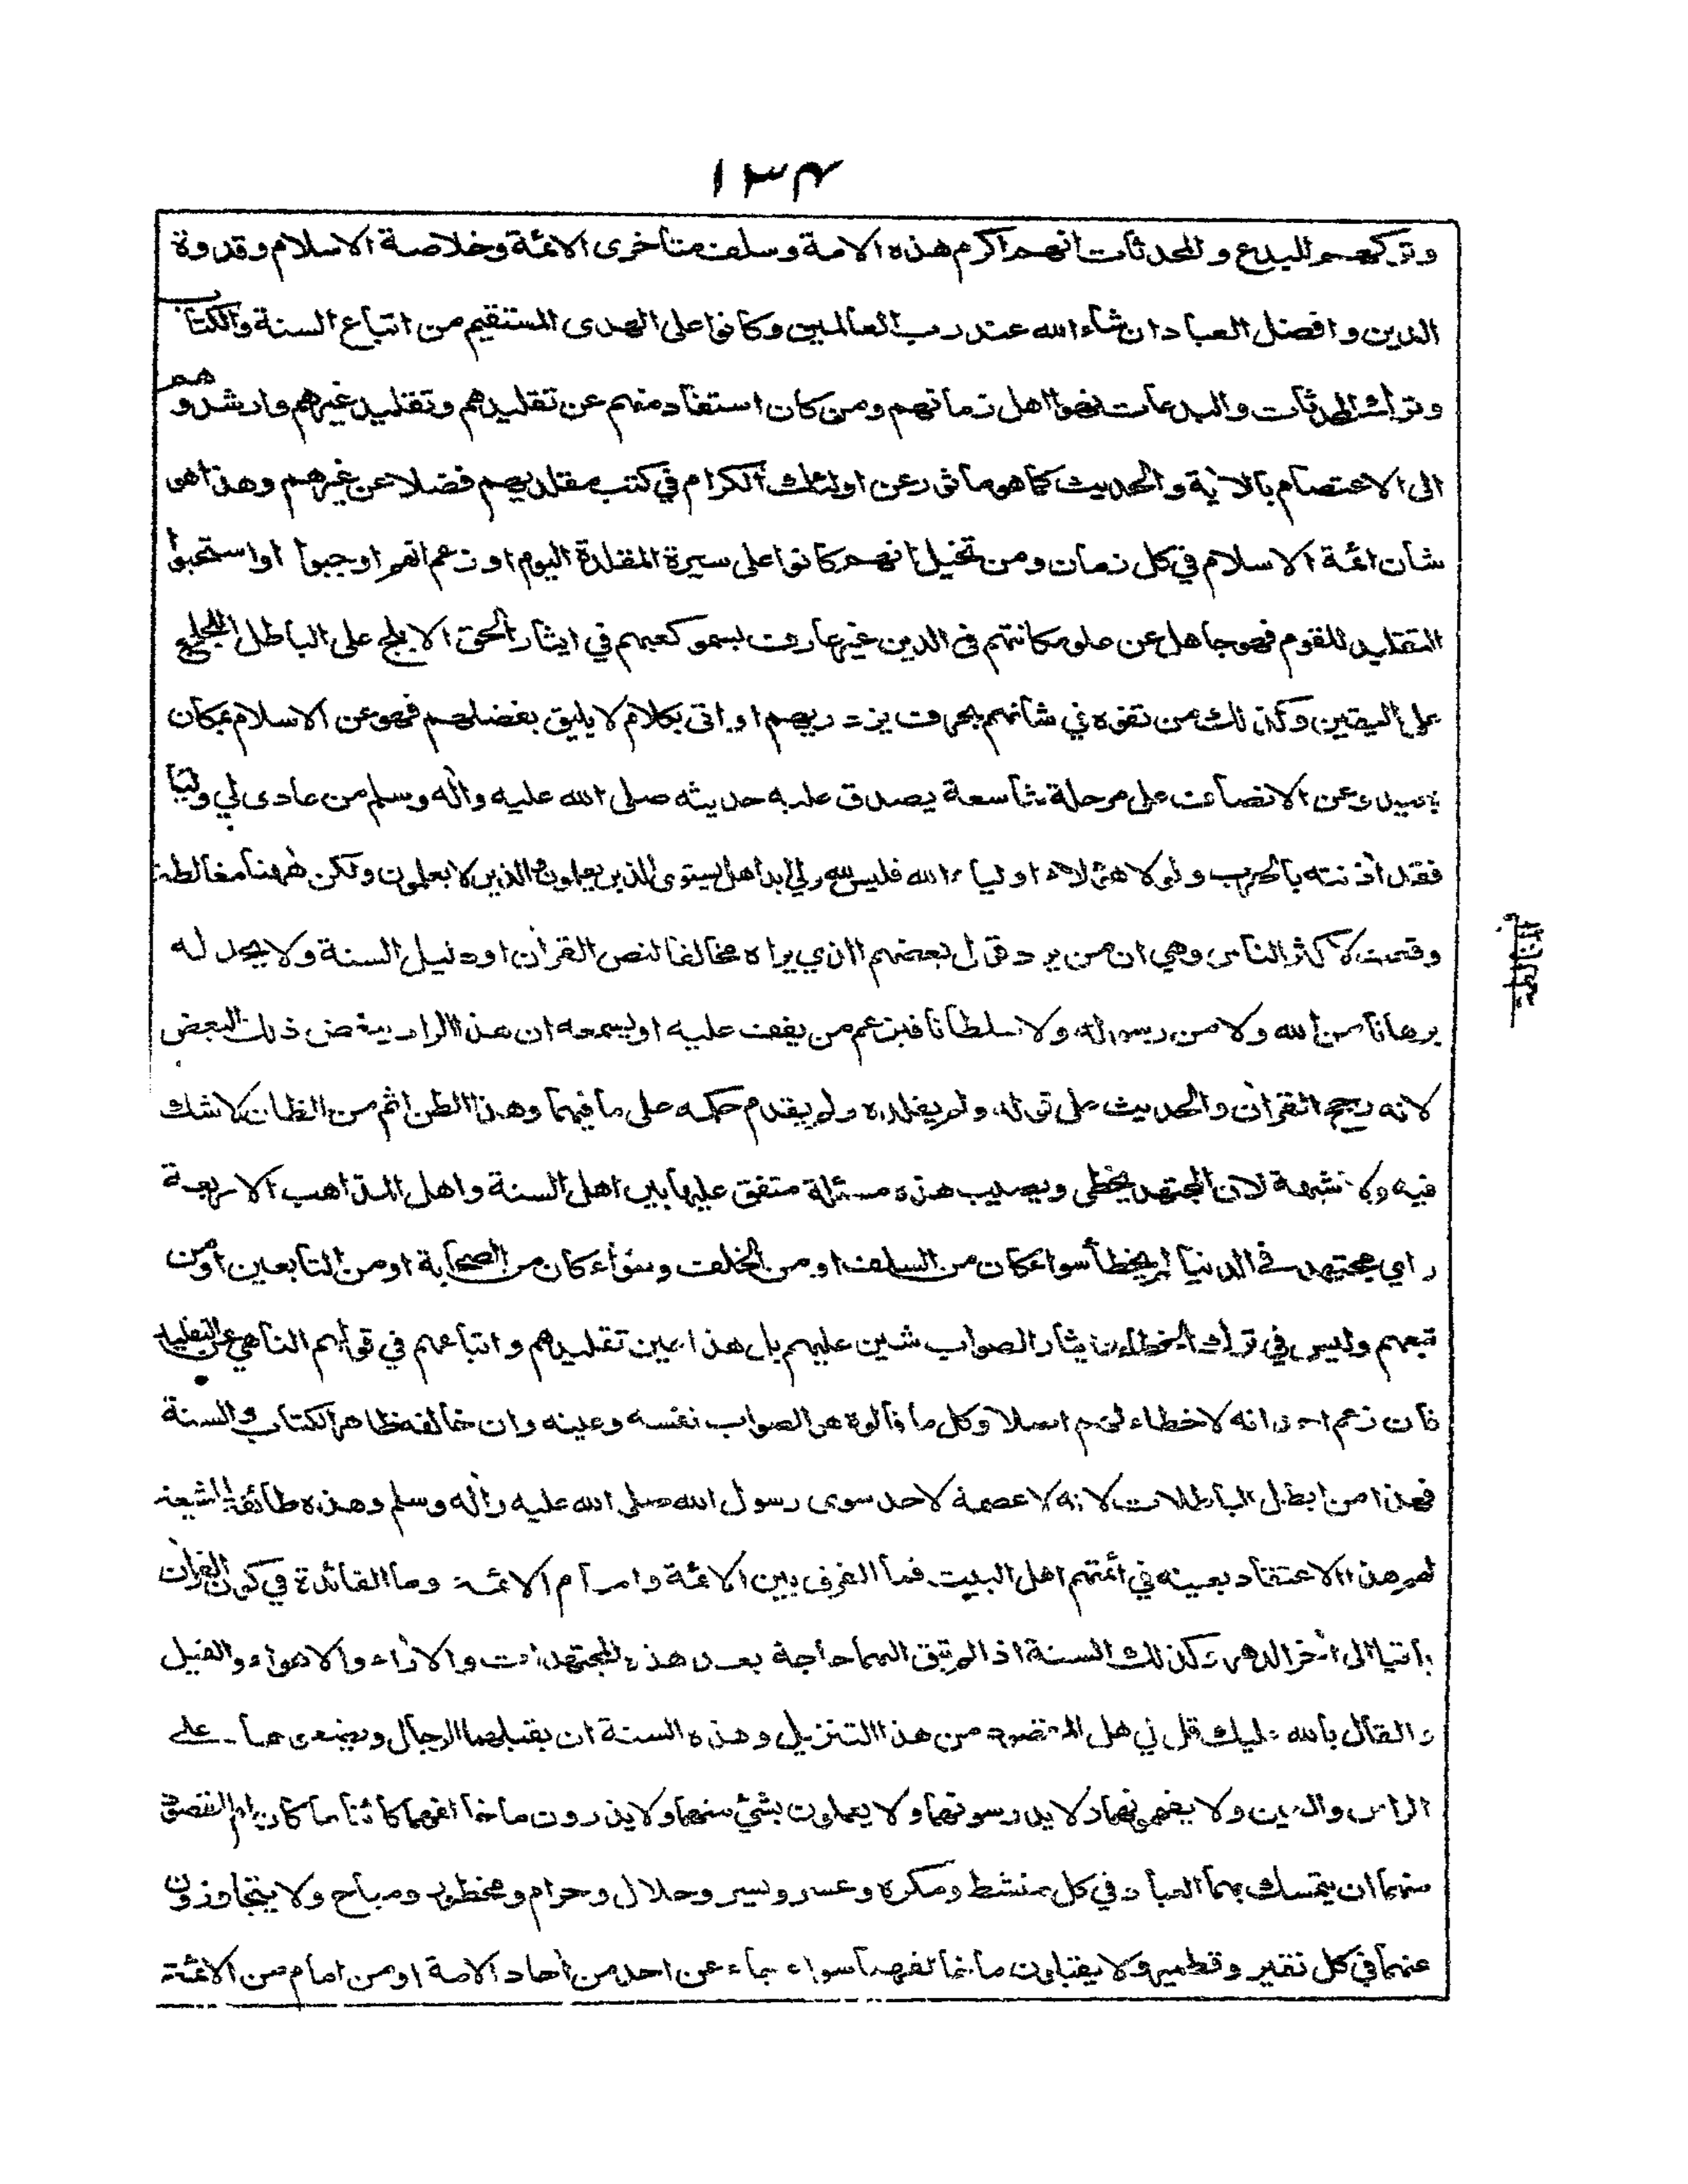 ١٣٤
وتركهم للبدع والمحدثات انهم اكرم هذه الامة وسلف متأخرى الائمة وخلاصة الاسلام وقدوة
الدين وافضل العباد ان شاء الله عند رب العالمين وكانوا على الهدى المستقيم من اتباع السنة والكتاب
وترك المحدثات والبدعات نهوا اهل زمانهم ومن كان استفاد منهم عن تقليدهم وتقليد غيرهم وارشدوهم
الى الاعتصام بالاية والحديث كما هو مأثور عن اولئك الكرام في كتب مقلديهم فضلا عن غيرهم وهذا هى
شأن ائمة الاسلام في كل زمان ومن تخيل انهم كانوا على سيرة المقلدة اليوم او زعم انهم اوجبوا او استحبوا
التقليد للقوم فهو جاهل عن علو مكانتهم فى الدين غير عارف بسمو كعبهم في ايثار الحق الابلج على الباطل اللجلج
على اليقين وكذلك من تفوه في شأنهم بحرف يزدريهم او اتى بكلام لا يليق بفضلهم فهو عن الاسلام بمكان
بعيد وعن الانصاف على مرحلة شاسعة يصدق عليه حديثه صلى الله عليه واٰله وسلم من عادى لي وليا
فقد اٰذنته بالحرب ولو لا هؤلاء اولياء الله فليس لله ولي ابدا هل يستوى الذين يعلمون والذين لا يعلمون ولكن ههنا مغالطة
وقعت لاكثر الناس وهي ان من يرد قول بعضهم الذي يراه مخالفا لنص القراٰن او دليل السنة ولا يجد له
برهانا من الله ولا من رسوله ولا سلطانا فيزعم من يقف عليه او يسمعه ان هذا الراد يبغض ذلك البعض
لانه رجح القراٰن والحديث على قوله ولم يقلده ولم يقدم حكمه على ما فيهما وهذا الظن اثم من الظان لا شك
فيه ولا شبهة لان المجتهد يخطى ويصيب هذه مسئلة متفق عليها بين اهل السنة واهل المذاهب الاربعة
راي مجتهد في الدنيا لم يخطأ سواء كان من السلف او من الخلف وسواء كان من الصحابة او من التابعين او من
تبعهم وليس في ترك الخطاء وايثار الصواب شين عليهم بل هذا عين تقليدهم واتباعهم في قولهم الناهي عن التقليد
فان زعم احد انه لا خطاء لهم اصلا وكل ما قالوه هو الصواب نفسه وعينه وان خالفه ظاهر الكتاب والسنة
فهذا من ابطل الباطلات لانه لا عصمة لاحد سوى رسول الله صلى الله عليه واٰله وسلم وهذه طائفة الشيعة
لهم هذا الاعتقاد بعينه في أئمتهم اهل البيت فما الفرق بين الائمة وامرآم الائمة وما الفائدة في كون القراٰن
باقيا الى اٰخر الدهر وكذلك السنة اذا لم تبق اليهما حاجة بعد هذه المجتهدات والاٰراء والاهواء والقيل
والقال بالله عليك قل لي هل المقصود من هذا التنزيل وهذه السنة ان يقبلهما الرجال ويضعوهما على
الراس والعين ولا يفهمونهما ولا يدرسونهما ولا يعملون بشئ منهما ولا يذرون ما خالفهما كائنا ما كان ام المقصود
منهما ان يتمسك بهما العباد في كل منشط ومكره وعسر ويسر وحلال وحرام ومحظور ومباح ولا يتجاوزون
عنهما في كل نقير وقطمير ولا يقبلون ما خالفهما سواء جاء عن احد من اٰحاد الامة او من امام من الائمة